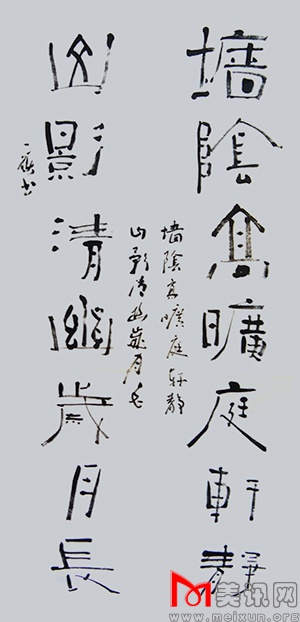 墻陰高曠庭軒靜
山影清幽歲月長
墻陰高曠庭軒靜
山影清幽歲月長
美讯网
www.meixun.org